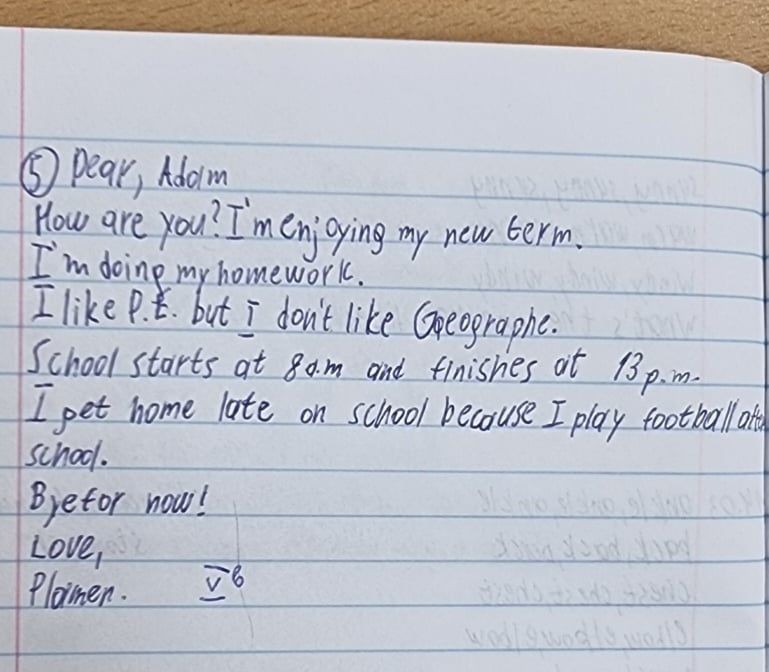 ⑤ Dear, Adam
How are you? I'm enjoying my new term.
I'm doing my homework.
I like P.E. but I don't like Geographe.
School starts at 8 a.m and finishes at 13 p.m.
I get home late on school because I play football after
school.
Bye for now!
Love,
Plamen. V б